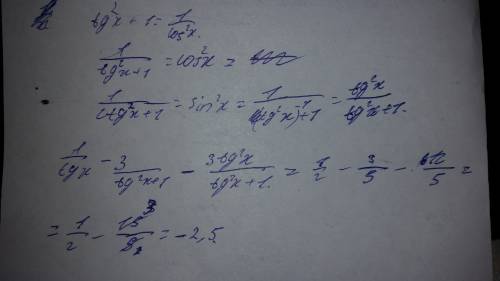 tg²x + 1 = 1/cos²x.
1/(tg²x+1) = cos²x =
1/(ctg²x+1) = sin²x = 1/((tg²x)⁻¹+1) = tg²x/(tg²x+1).
1/tgx - 3/(tg²x+1) - 3tg²x/(tg²x+1) = 1/2 - 3/5 - 12/5 =
= 1/2 - 15/5 = -2,5.